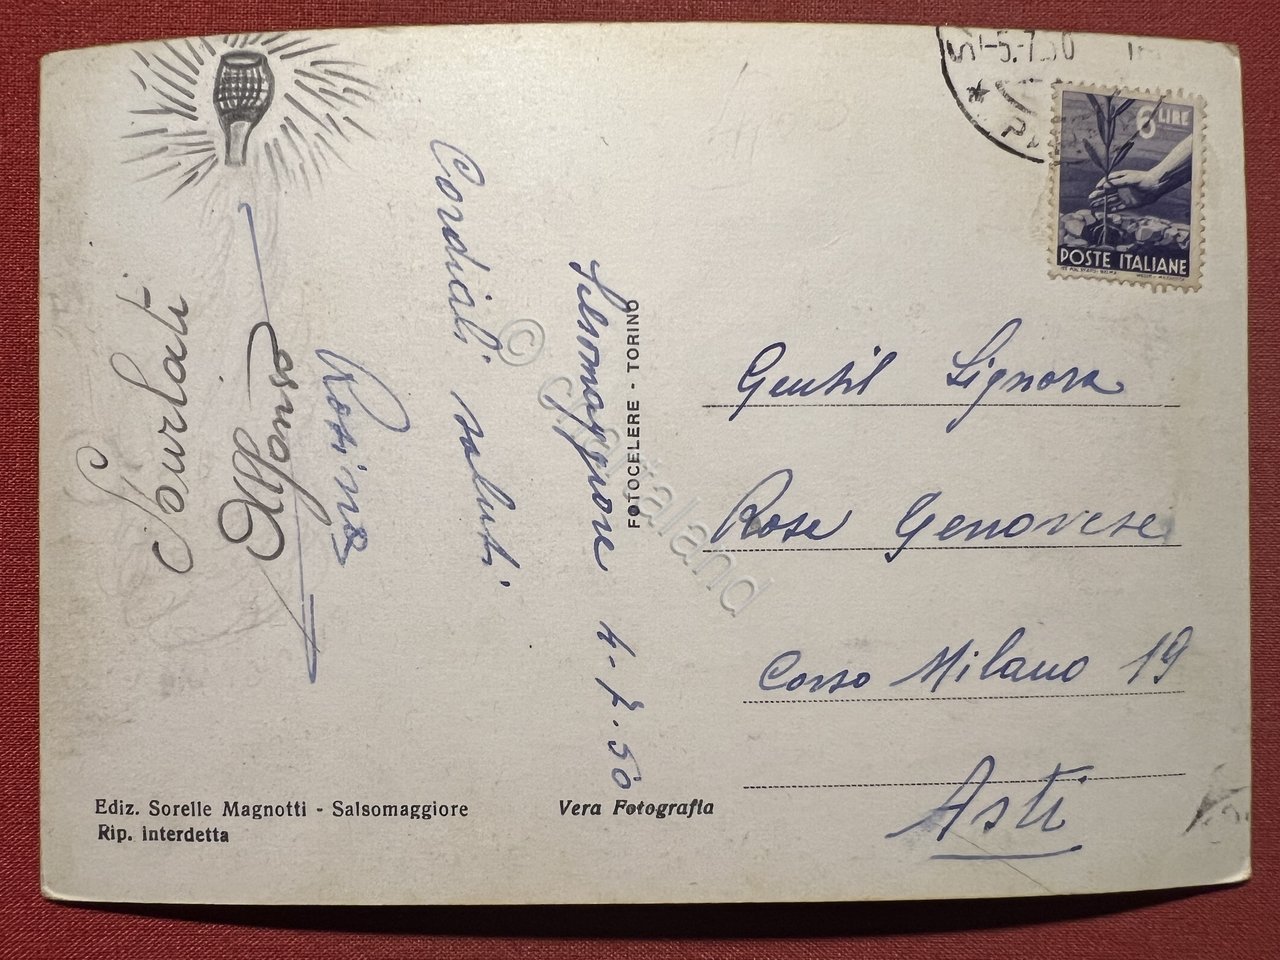 Salsomaggiore 4-7.50
Cordiali saluti
Rosina
Alfonso
-5.7.50
6 LIRE
POSTE ITALIANE
Gentil Signora
Rosa Genovese
Corso Milano 19
Asti
FOTOCELERE - TORINO
Ediz. Sorelle Magnotti - Salsomaggiore
Rip. interdetta
Vera Fotografia